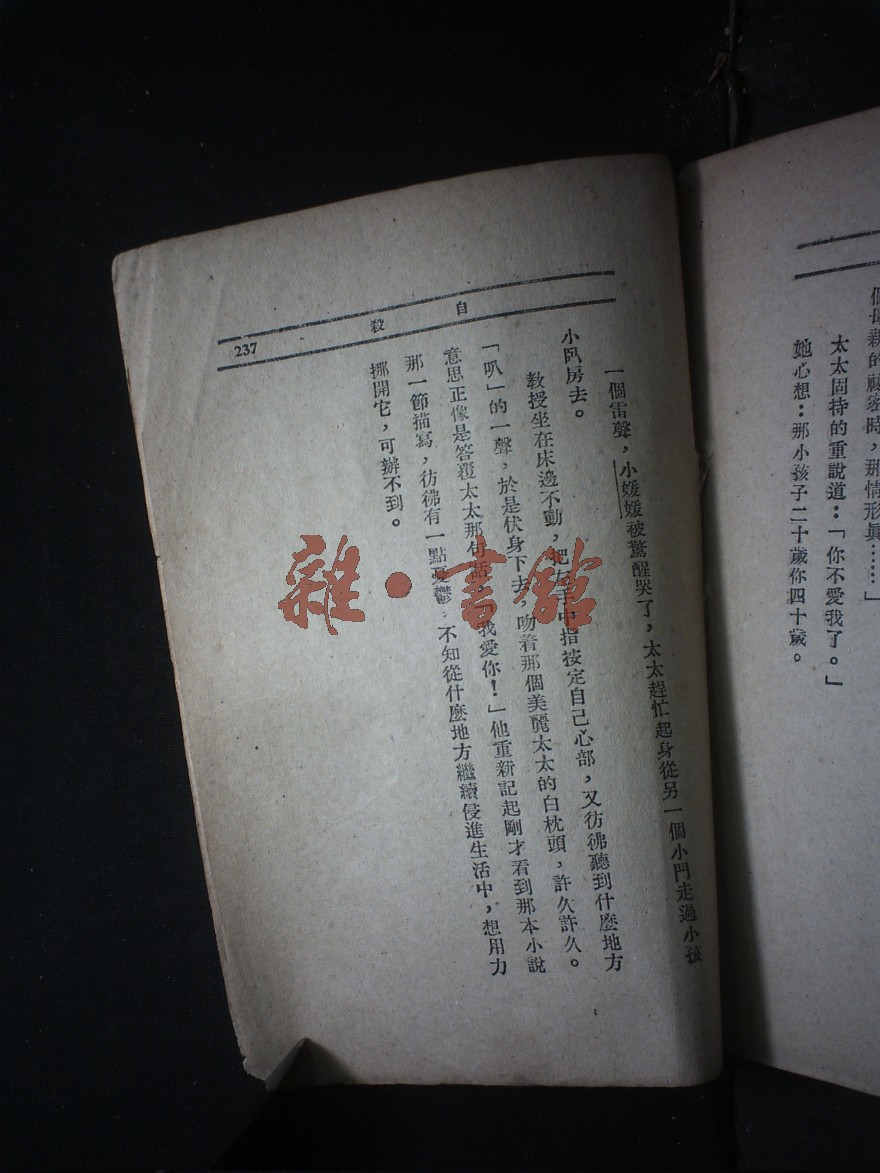 個母親的秘密時，那情形眞……」
太太固持的重說道：「你不愛我了。」
她心想：那小孩子二十歲你四十歲。
自殺
237
一個雷聲，小媛媛被驚醒哭了，太太趕忙起身從另一個小門走過小孩
小臥房去。
教授坐在床邊不動，把左手中指按定自己心部，又彷彿聽到什麼地方
「叭」的一聲，於是伏身下去，吻着那個美麗太太的白枕頭，許久許久。
意思正像是答覆太太那句話，「我愛你！」他重新記起剛才看到那本小說
那一節描寫，彷彿有一點憂鬱，不知從什麼地方繼續侵進生活中，想用力
挪開它，可辦不到。
雜·書館